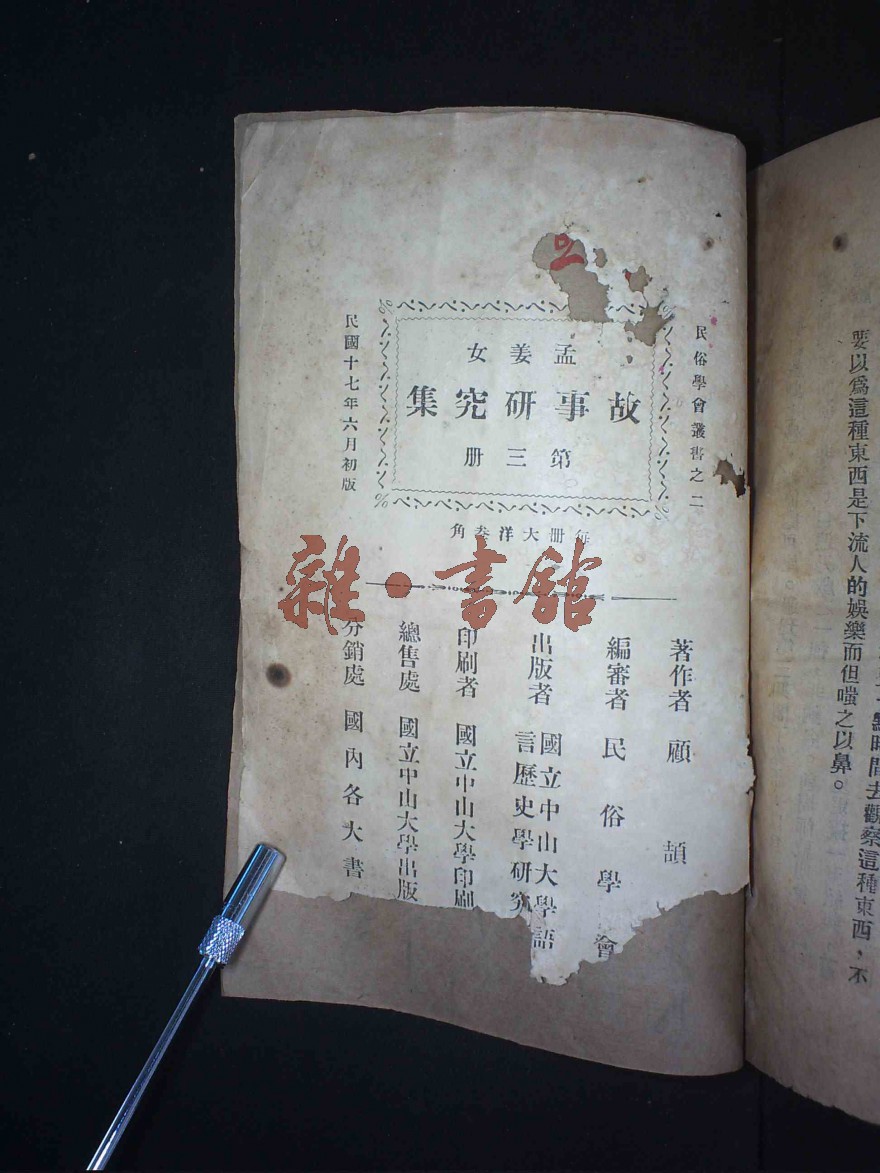 民俗學會叢書之二
孟姜女
故事研究集
第三册
民國十七年六月初版
每册大洋叁角
雜·書館
著作者 顧 頡
編審者 民俗學會
出版者 國立中山大學語
言歷史學研究
印刷者 國立中山大學印刷
總售處 國立中山大學出版
分銷處 國內各大書
點時間去觀察這種東西，不
要以爲這種東西是下流人的娛樂而但嗤之以鼻。